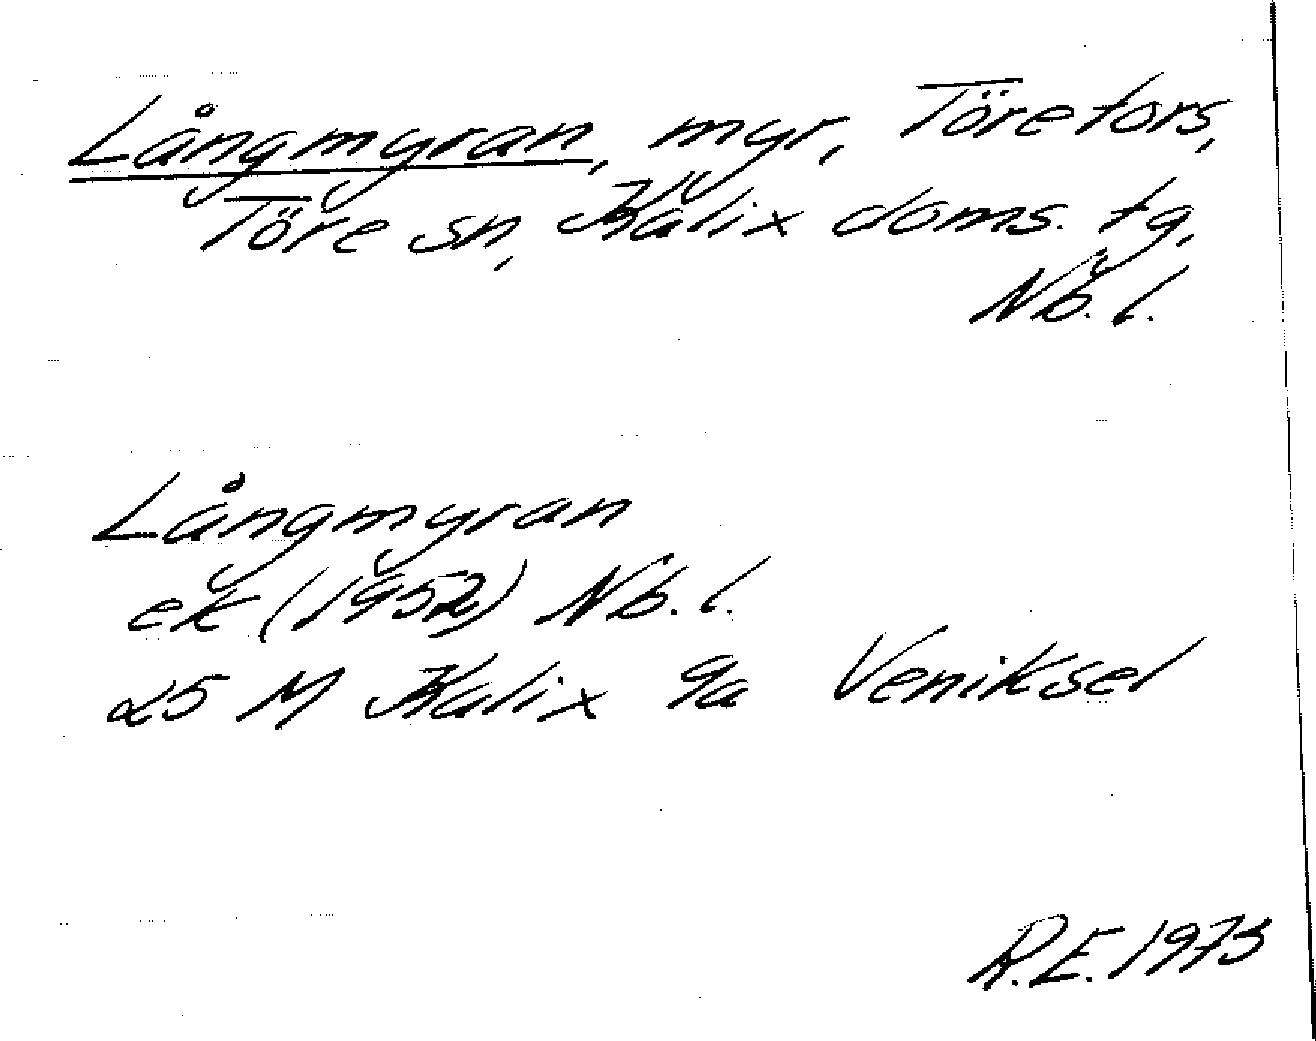 Långmyran, myr, Törefors,
Töre sn, Kalix doms. tg,
Nb. l.
Långmyran
ek (1952) Nb. l.
25 M Kalix 9a Veniksel
R.E. 1973